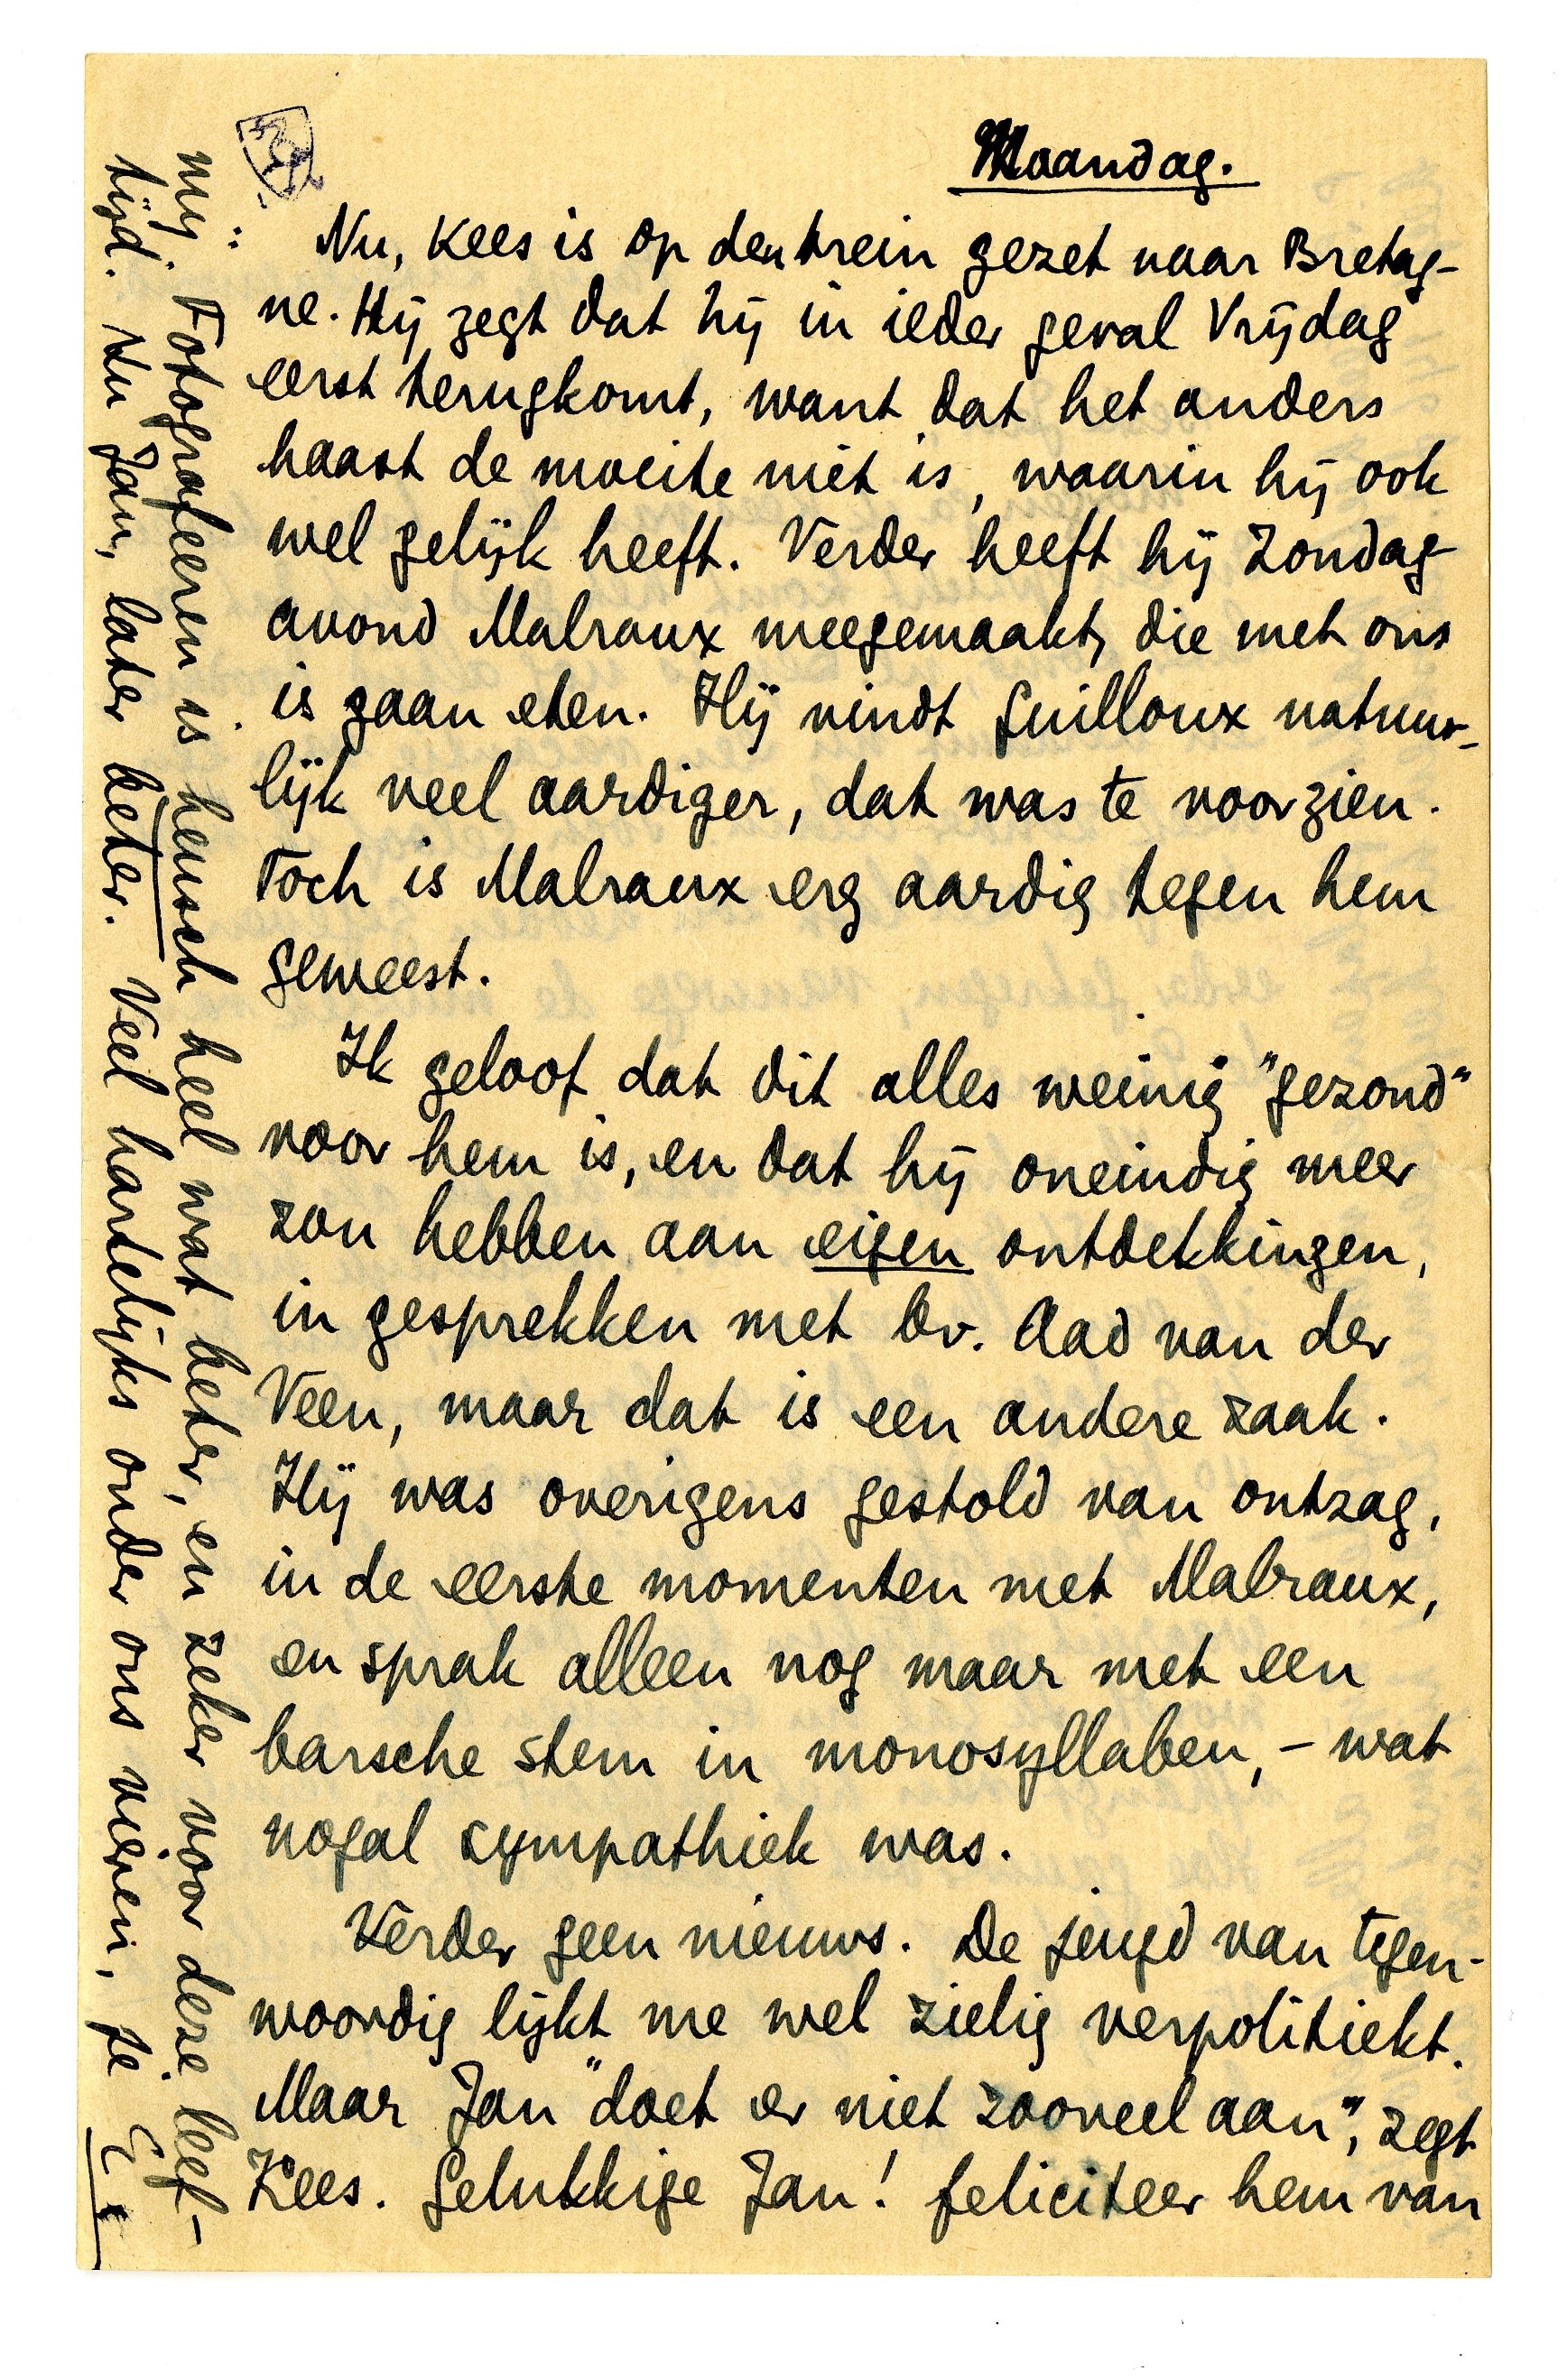 Maandag.
Nu, Kees is op den trein gezet naar Bretag-
ne. Hij zegt dat hij in ieder geval Vrijdag
eerst terugkomt, want dat het anders
haast de moeite niet is, waarin hij ook
wel gelijk heeft. Verder heeft hij Zondag-
avond Malraux meegemaakt, die met ons
is gaan eten. Hij vindt Guilloux natuur-
lijk veel aardiger, dat was te voorzien.
Toch is Malraux erg aardig tegen hem
geweest.
Ik geloof dat dit alles weinig "gezond"
voor hem is, en dat hij oneindig meer
zou hebben aan eigen ontdekkingen,
in gesprekken met bv. Aad van der
Veen, maar dat is een andere zaak.
Hij was overigens gestold van ontzag,
in de eerste momenten met Malraux,
en sprak alleen nog maar met een
barsche stem in monosyllaben, - wat
nogal sympathiek was.
Verder geen nieuws. De jeugd van tegen-
woordig lijkt me wel zielig verpolitiekt.
Maar Jan "doet er niet zooveel aan", zegt
Kees. Gelukkige Jan! feliciteer hem van
mij. Fotografeeren is heusch heel wat beter, en zeker voor deze leef-
tijd. Nu Jan, later beter. Veel hartelijks onder ons vieren, je E.